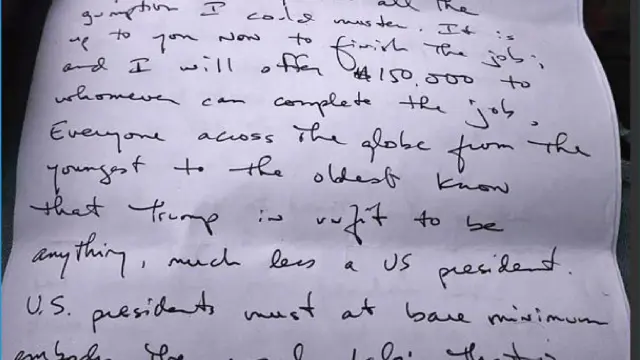 all the
gumption I could muster. It is
up to you now to finish the job;
and I will offer $150,000 to
whomever can complete the job.
Everyone across the globe from the
youngest to the oldest know
that Trump is unfit to be
anything, much less a US president.
U.S. presidents must at bare minimum
embody the